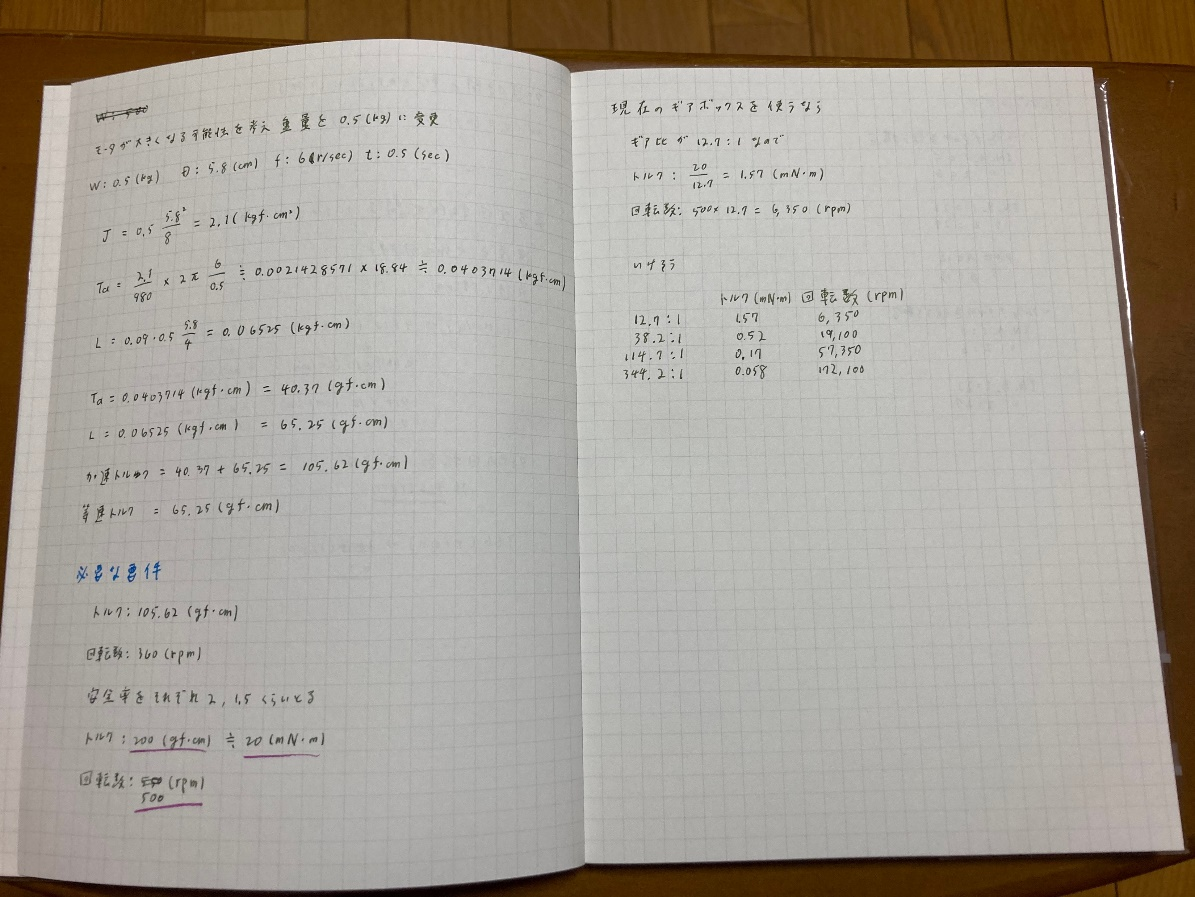 モータが大きくなる可能性を考え 重量を 0.5(kg)に変更
W:0.5(kg) D:5.8(cm) f:6(r/sec) t:0.5(sec)
J = 0.5 5.8²/8 = 2.1(kgf·cm²)
Ta = 2.1/980 × 2π 6/0.5 ≒ 0.0021428571 × 18.84 ≒ 0.0403714(kgf·cm)
L = 0.09·0.5 5.8/4 = 0.06525(kgf·cm)
Ta = 0.0403714(kgf·cm) = 40.37(gf·cm)
L = 0.06525(kgf·cm) = 65.25(gf·cm)
加速トルク = 40.37 + 65.25 = 105.62(gf·cm)
等速トルク = 65.25(gf·cm)
必要な要件
トルク:105.62(gf·cm)
回転数:360(rpm)
安全率をそれぞれ2, 1.5くらいとる
トルク:200(gf·cm) ≒ 20(mN·m)
回転数: (rpm)
500
現在のギアボックスを使うなら
ギア比が 12.7:1 なので
トルク: 20/12.7 = 1.57 (mN·m)
回転数: 500× 12.7 = 6,350 (rpm)
いけそう
トルク(mN·m) 回転数(rpm)
12.7:1 1.57 6,350
38.2:1 0.52 19,100
114.7:1 0.17 57,350
344.2:1 0.058 172,100